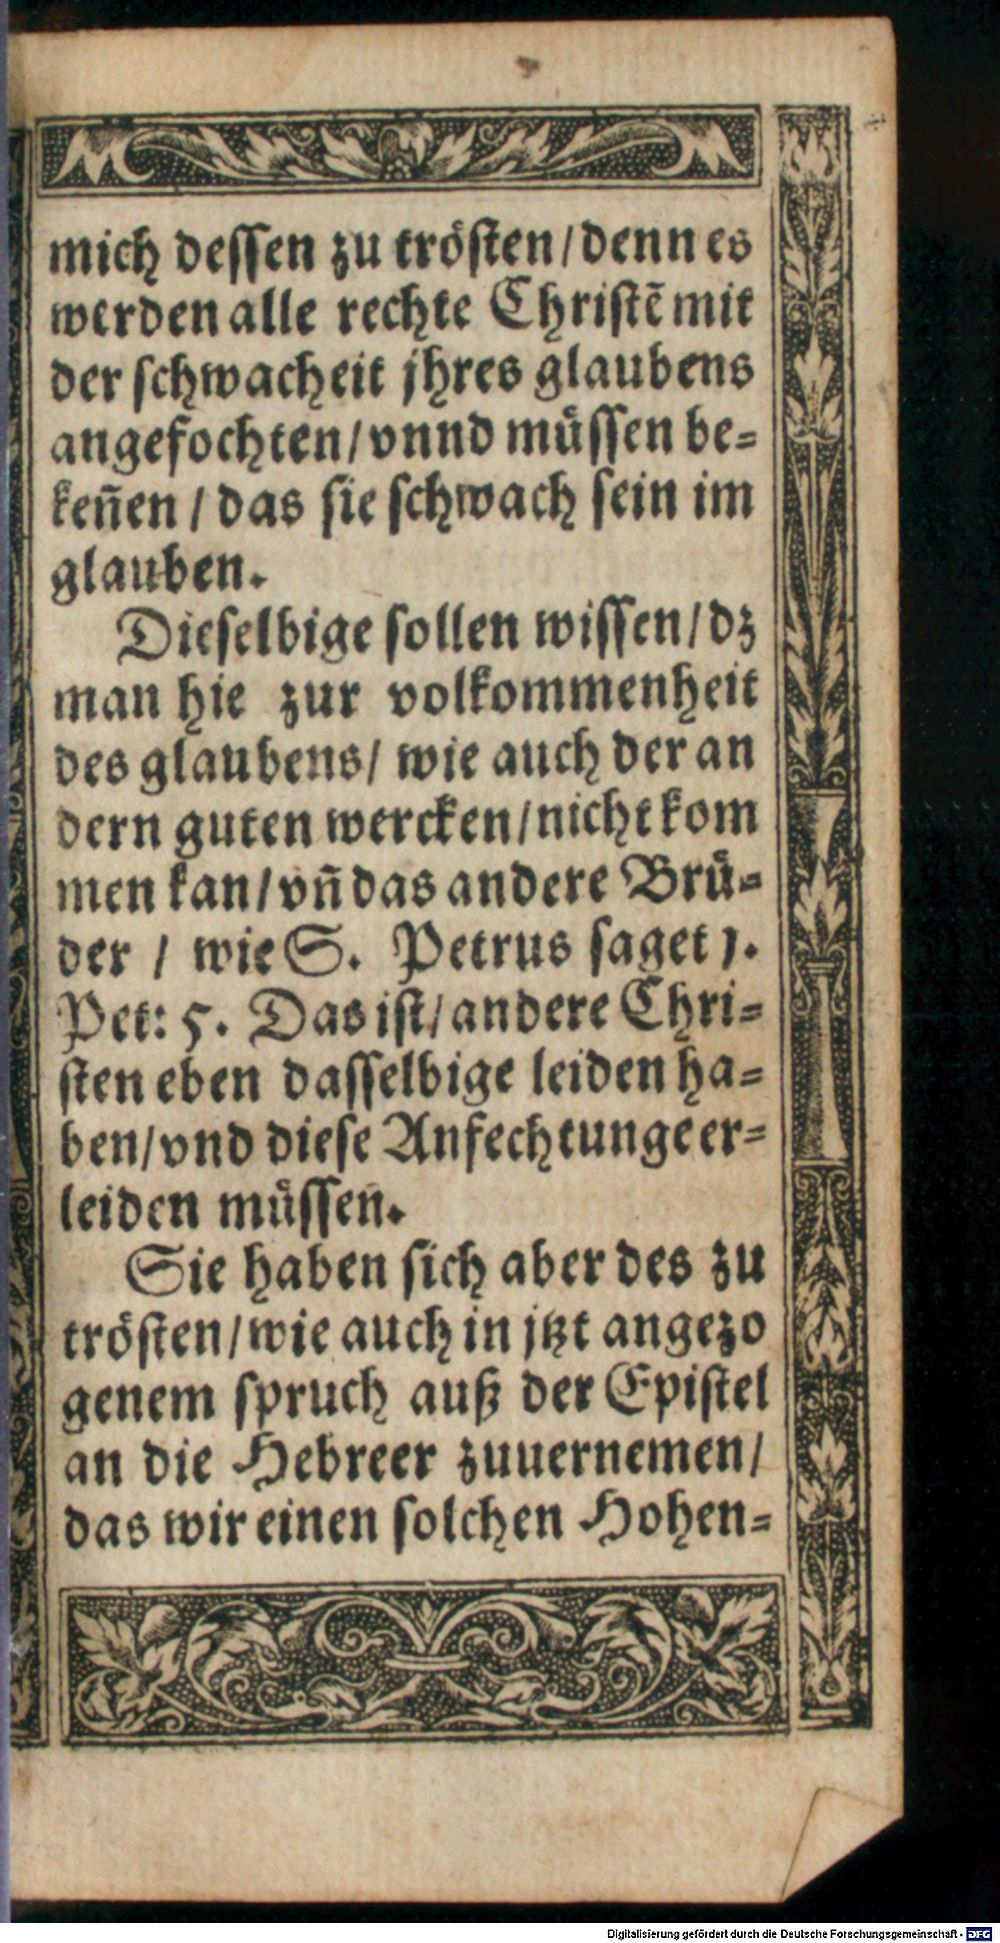 mich dessen zu trösten/denn es
werden alle rechte Christẽ mit
der schwacheit jhres glaubens
angefochten/vnnd müssen be=
keñen / das sie schwach sein im
glauben.
Dieselbige sollen wissen/dz
man hie zur volkommenheit
des glaubens/ wie auch der an
dern guten wercken/nicht kom
men kan/vñ das andere Brü=
der / wie S. Petrus saget 1.
Pet: 5. Das ist/andere Chri=
sten eben dasselbige leiden ha=
ben/vnd diese Anfechtunge er=
leiden müssen.
Sie haben sich aber des zu
trösten/wie auch in jtzt angezo
genem spruch auß der Epistel
an die Hebreer zuuernemen/
das wir einen solchen Hohen=
Digitalisierung gefördert durch die Deutsche Forschungsgemeinschaft - DFG